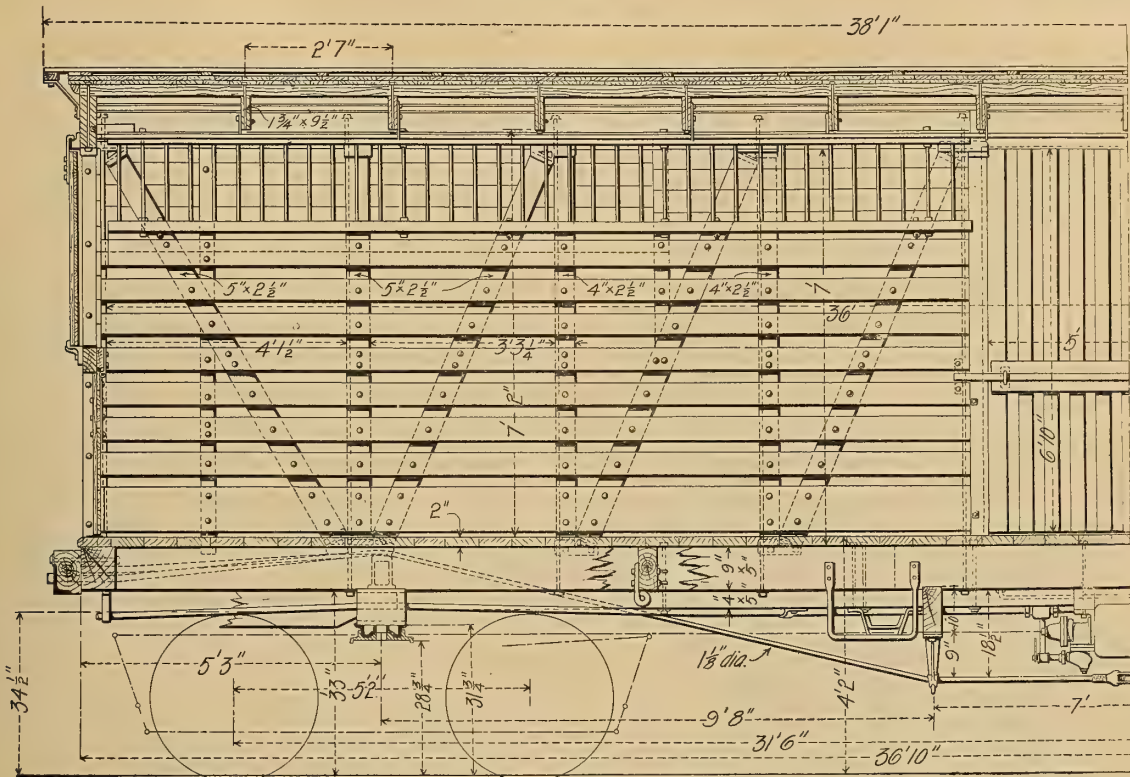 38'1"
2'7"
1¾" × 9½"
5" × 2½"
5" × 2½"
4" × 2½"
4" × 2½"
7'
36'
4'1½"
3'3¼"
5'
7'-2"
6'10"
2"
9" × 5"
4" × 5"
1⅛" dia.
9" × 10"
18½"
5'3"
5'2"
33"
28¾"
31¾"
34½"
4'2"
9'8"
7'
31'6"
36'10"